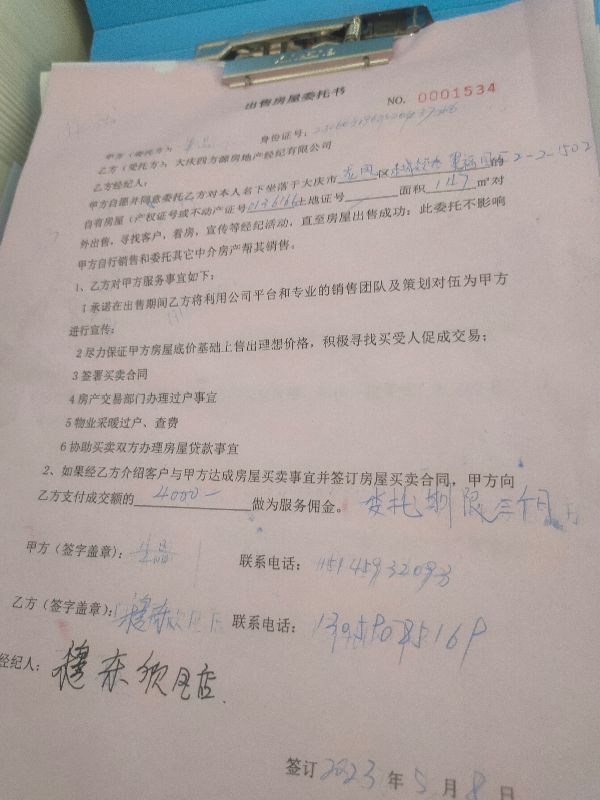 出售房屋委托书
NO. 0001534
甲方（委托方）： 身份证号：
乙方（受托方）：大庆四方源房地产经纪有限公司
乙方经纪人：
甲方自愿并同意委托乙方对本人名下坐落于大庆市龙凤区 2-2-1502的
自有房屋（产权证号或不动产证号 土地证号 面积147㎡对
外出售，寻找客户、看房，宣传等经纪活动，直至房屋出售成功：此委托不影响
甲方自行销售和委托其它中介房产帮其销售。
1、乙方对甲方服务事宜如下：
1承诺在出售期间乙方将利用公司平台和专业的销售团队及策划对伍为甲方
进行宣传：
2尽力保证甲方房屋底价基础上售出理想价格，积极寻找买受人促成交易；
3签署买卖合同
4房产交易部门办理过户事宜
5物业采暖过户、查费
6协助买卖双方办理房屋贷款事宜
2、如果经乙方介绍客户与甲方达成房屋买卖事宜并签订房屋买卖合同，甲方向
乙方支付成交额的4000一做为服务佣金。委托期限三个月
甲方（签字盖章）： 联系电话：15145932093
乙方（签字盖章）： 联系电话：
经纪人：
签订2023年5月8日